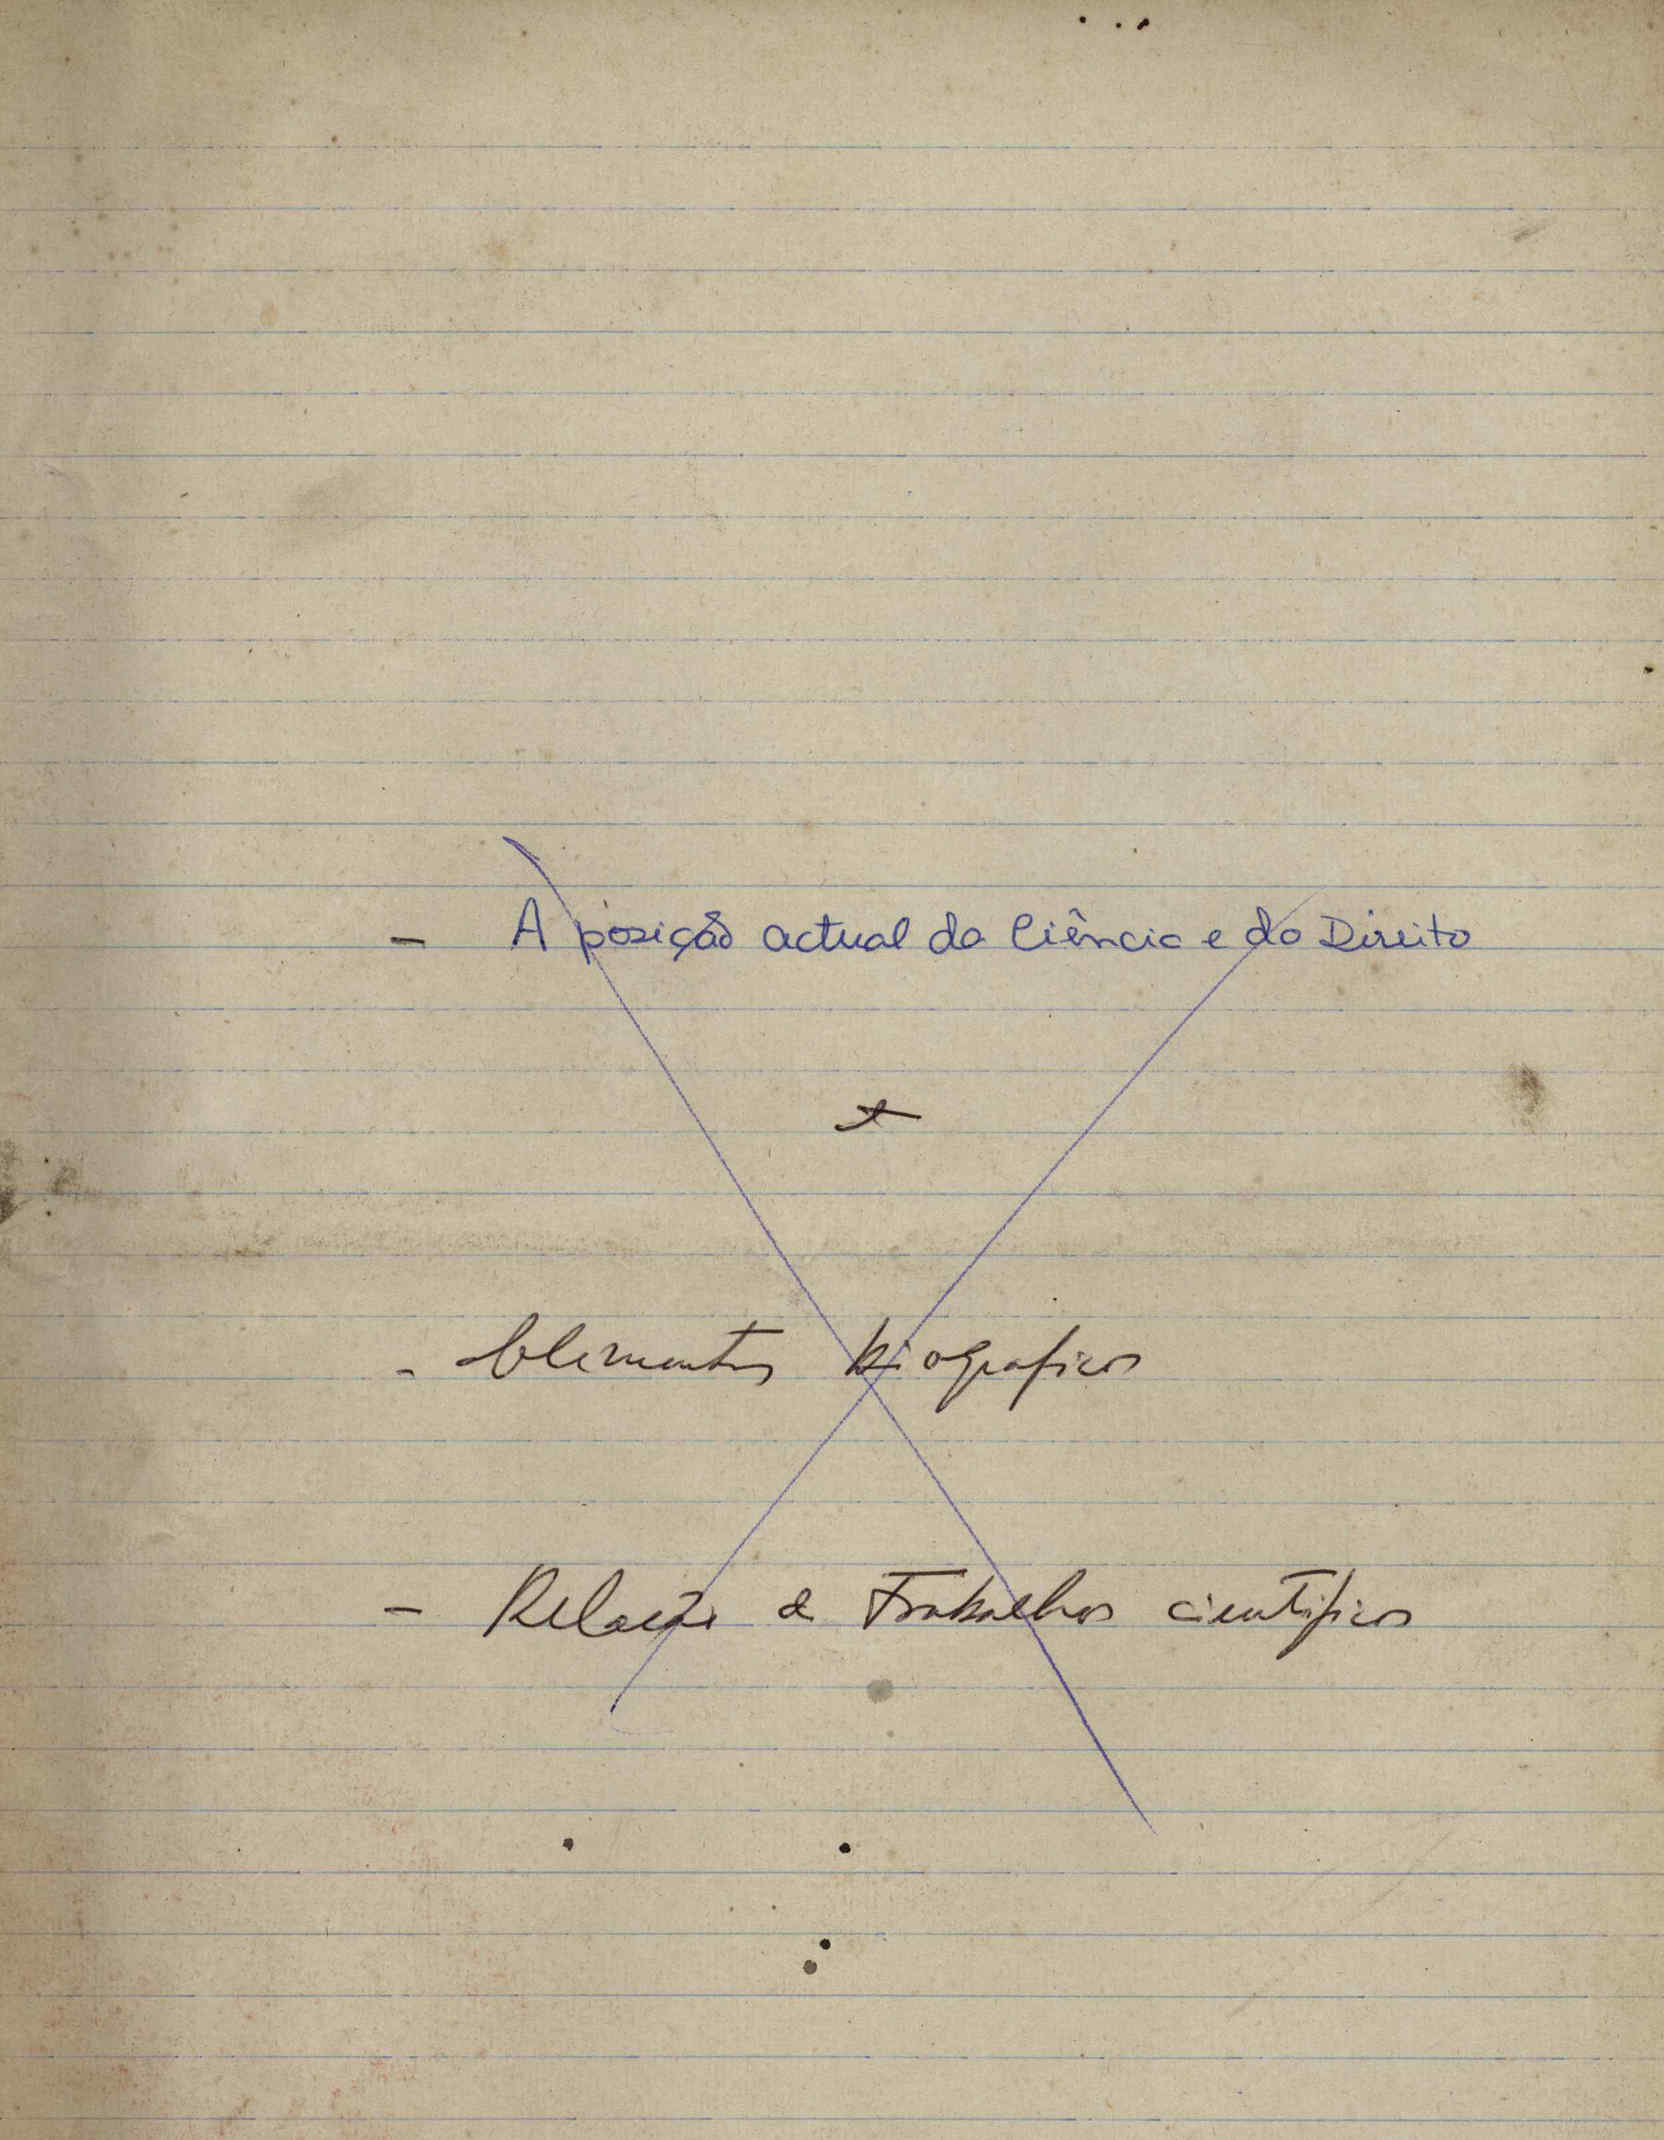 - A posição actual da Ciência e do Direito
- Elementos biograficos
- Relação de Trabalhos cientificos